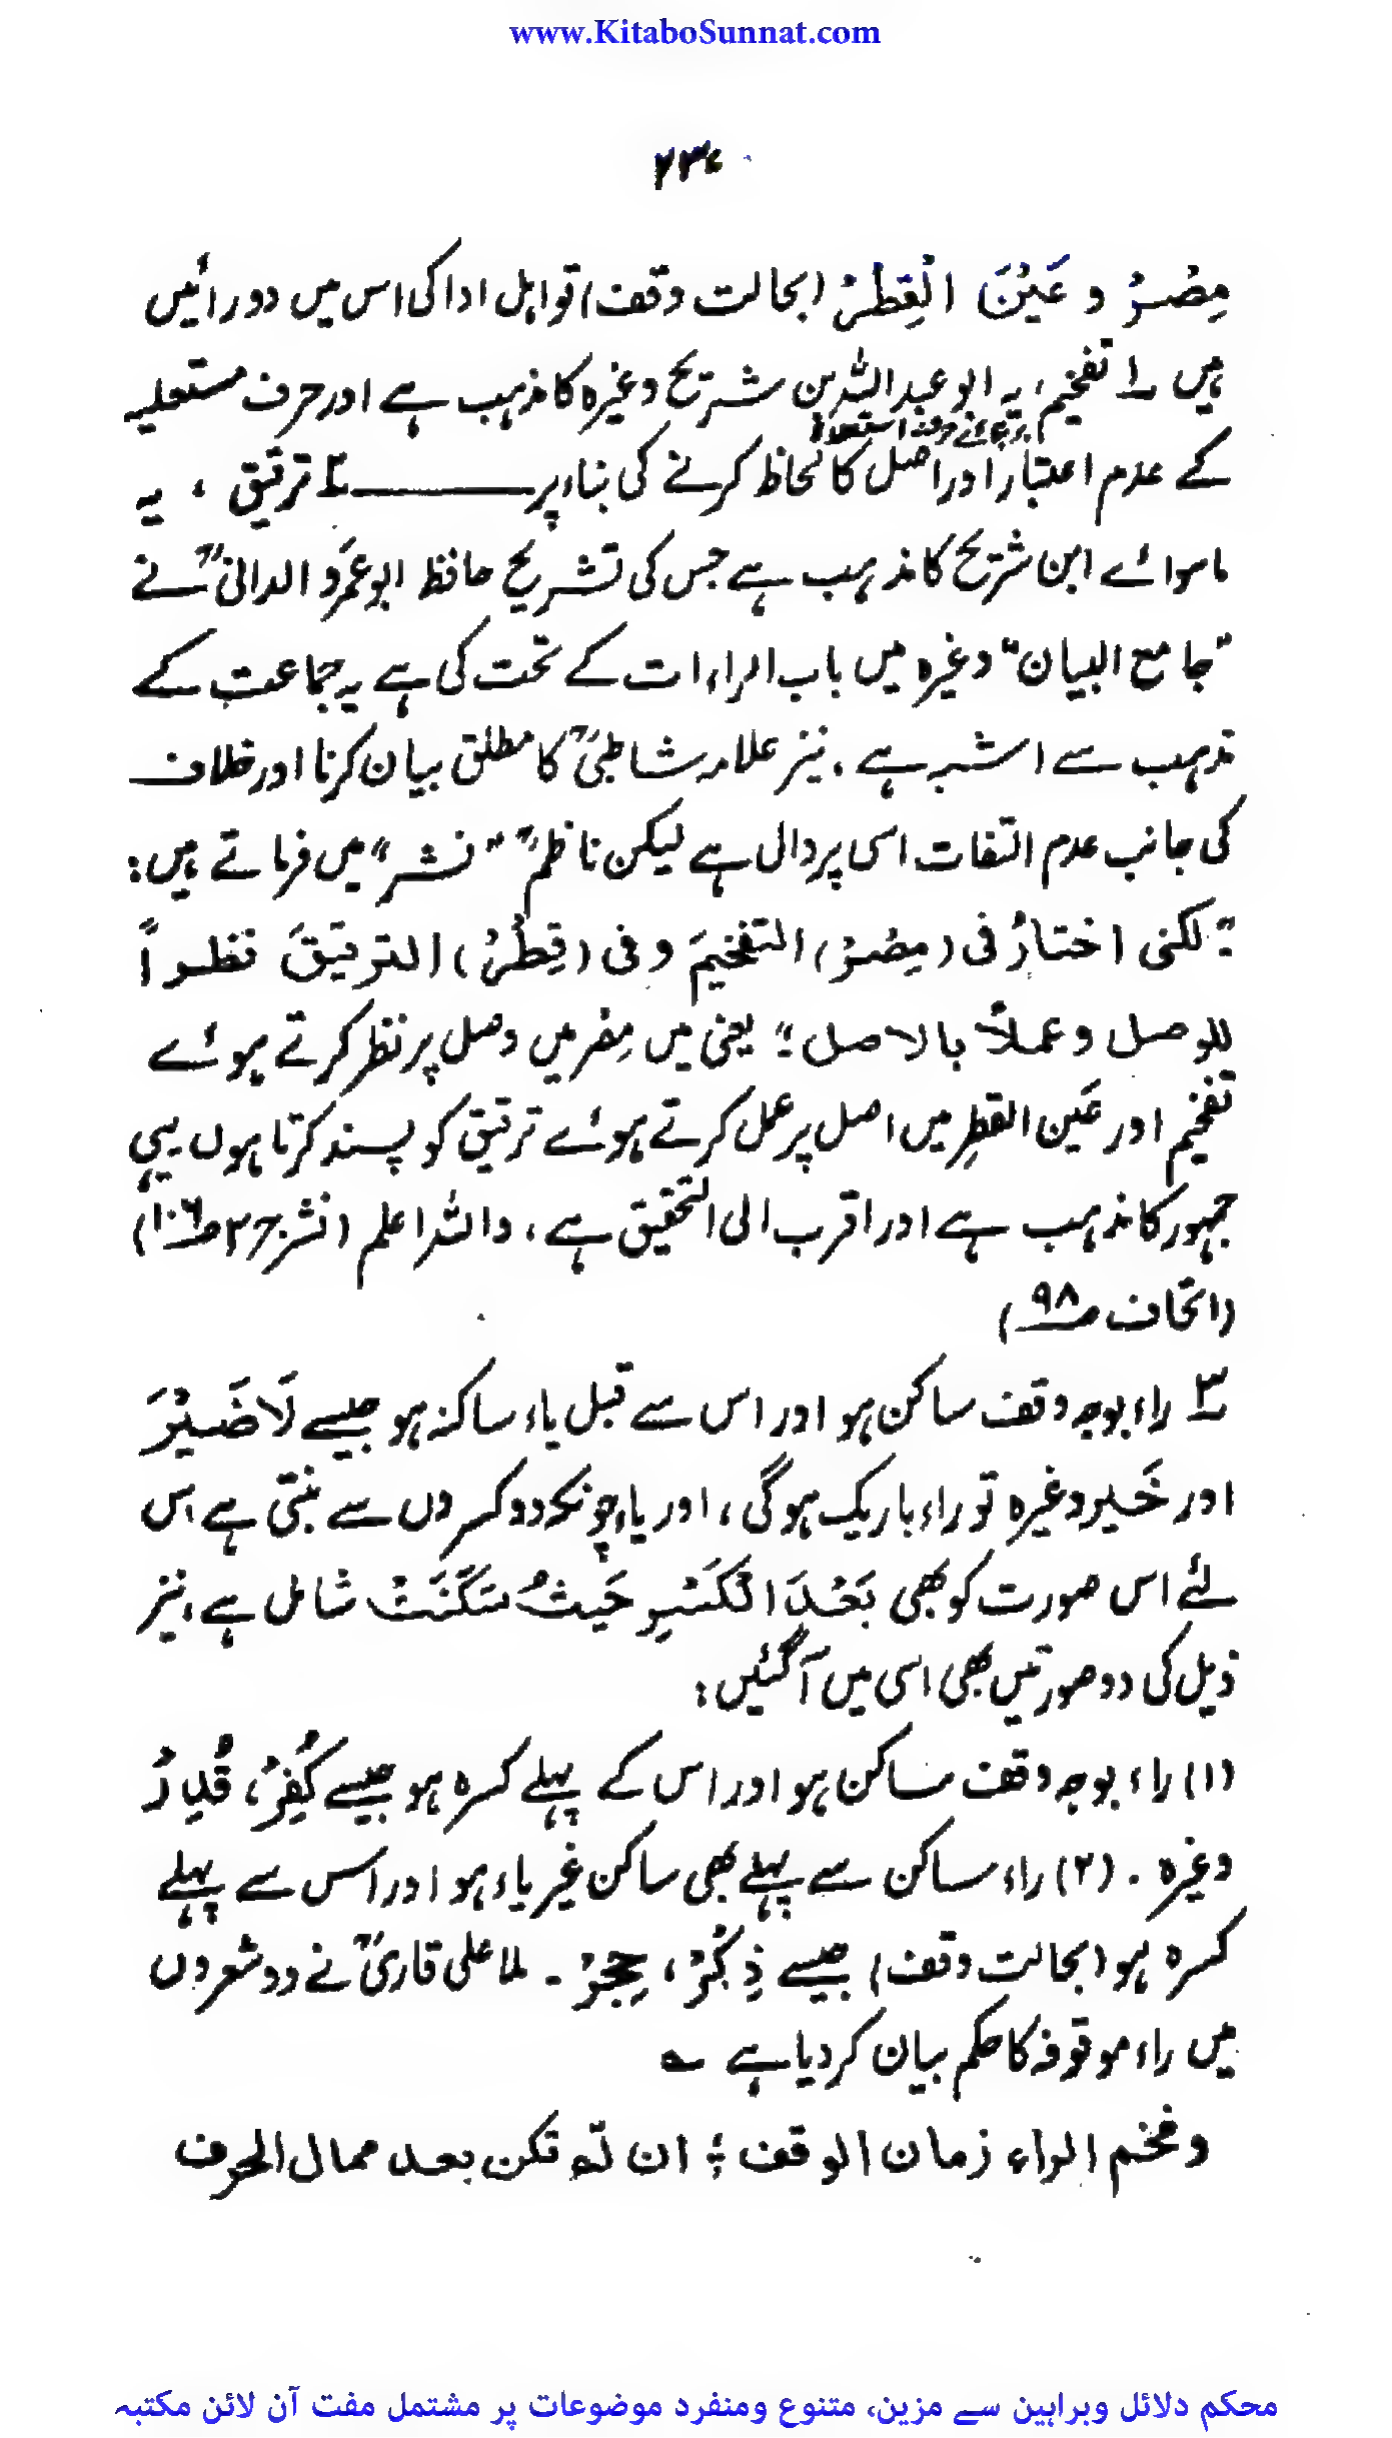 www.KitaboSunnat.com
۲۳۷
مِصْرْ و عَيْنَ الْقِطْرْ (بحالت وقف) تو اہل ادا کی اس میں دو رائیں
ہیں ۱ تفخیم، یہ ابو عبداللہ بن شریح وغیرہ کا مذہب ہے اور حرف مستعلیہ
کے عدم اعتبار اور اصل کا لحاظ کرنے کی بناء پر ——— ۲ ترقیق ، یہ
ماسوائے ابن شریح کا مذہب ہے جس کی تشریح حافظ ابو عمرو الدانیؒ نے
"جامع البیان" وغیرہ میں باب الراءات کے تحت کی ہے یہ جماعت کے
مذہب سے اشبہ ہے، نیز علامہ شاطبیؒ کا مطلق بیان کرنا اور خلاف
کی جانب عدم التفات اسی پر دال ہے لیکن ناظمؒ "نشر" میں فرماتے ہیں:
"لکنی اختارُ فی (مِصْرْ) التفخیمَ و فی (قِطْرْ) الترقیقَ نظراً
للوصل و عملاً بالاصل" یعنی میں مِصر میں وصل پر نظر کرتے ہوئے
تفخیم اور عَین القطِر میں اصل پر عمل کرتے ہوئے ترقیق کو پسند کرتا ہوں یہی
جمہور کا مذہب ہے اور اقرب الی التحقیق ہے، واللہ اعلم (نشر ج ۲ ص ۱۰۶)
(اتحاف ص ۹۸)
۳ راء بوجہ وقف ساکن ہو اور اس سے قبل یاء ساکنہ ہو جیسے لَا ضَیْرَ
اور خَیر وغیرہ تو راء باریک ہوگی، اور یاء چونکہ دو کسروں سے بنتی ہے اس
لئے اس صورت کو بھی بَعْدَ الْکَسْرِ حَیثُ سَکَنَتْ شامل ہے، نیز
ذیل کی دو صورتیں بھی اسی میں آگئیں:
(۱) راء بوجہ وقف ساکن ہو اور اس کے پہلے کسرہ ہو جیسے کُفِرْ، قُدِرْ
وغیرہ . (۲) راء ساکن سے پہلے بھی ساکن غیر یاء ہو اور اس سے پہلے
کسرہ ہو (بحالت وقف) جیسے ذِکْرْ، حِجْرْ - ملا علی قاریؒ نے دو شعروں
میں راء موقوفہ کا حکم بیان کر دیا ہے ؎
وفخم الراء زمان الوقف ؛ ان لم تکن بعد ممال الحرف
محکم دلائل وبراہین سے مزین، متنوع ومنفرد موضوعات پر مشتمل مفت آن لائن مکتبہ